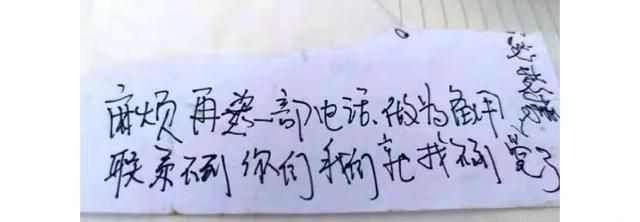 麻烦再装一部电话、做为备用
联系不到你们我们就找不到